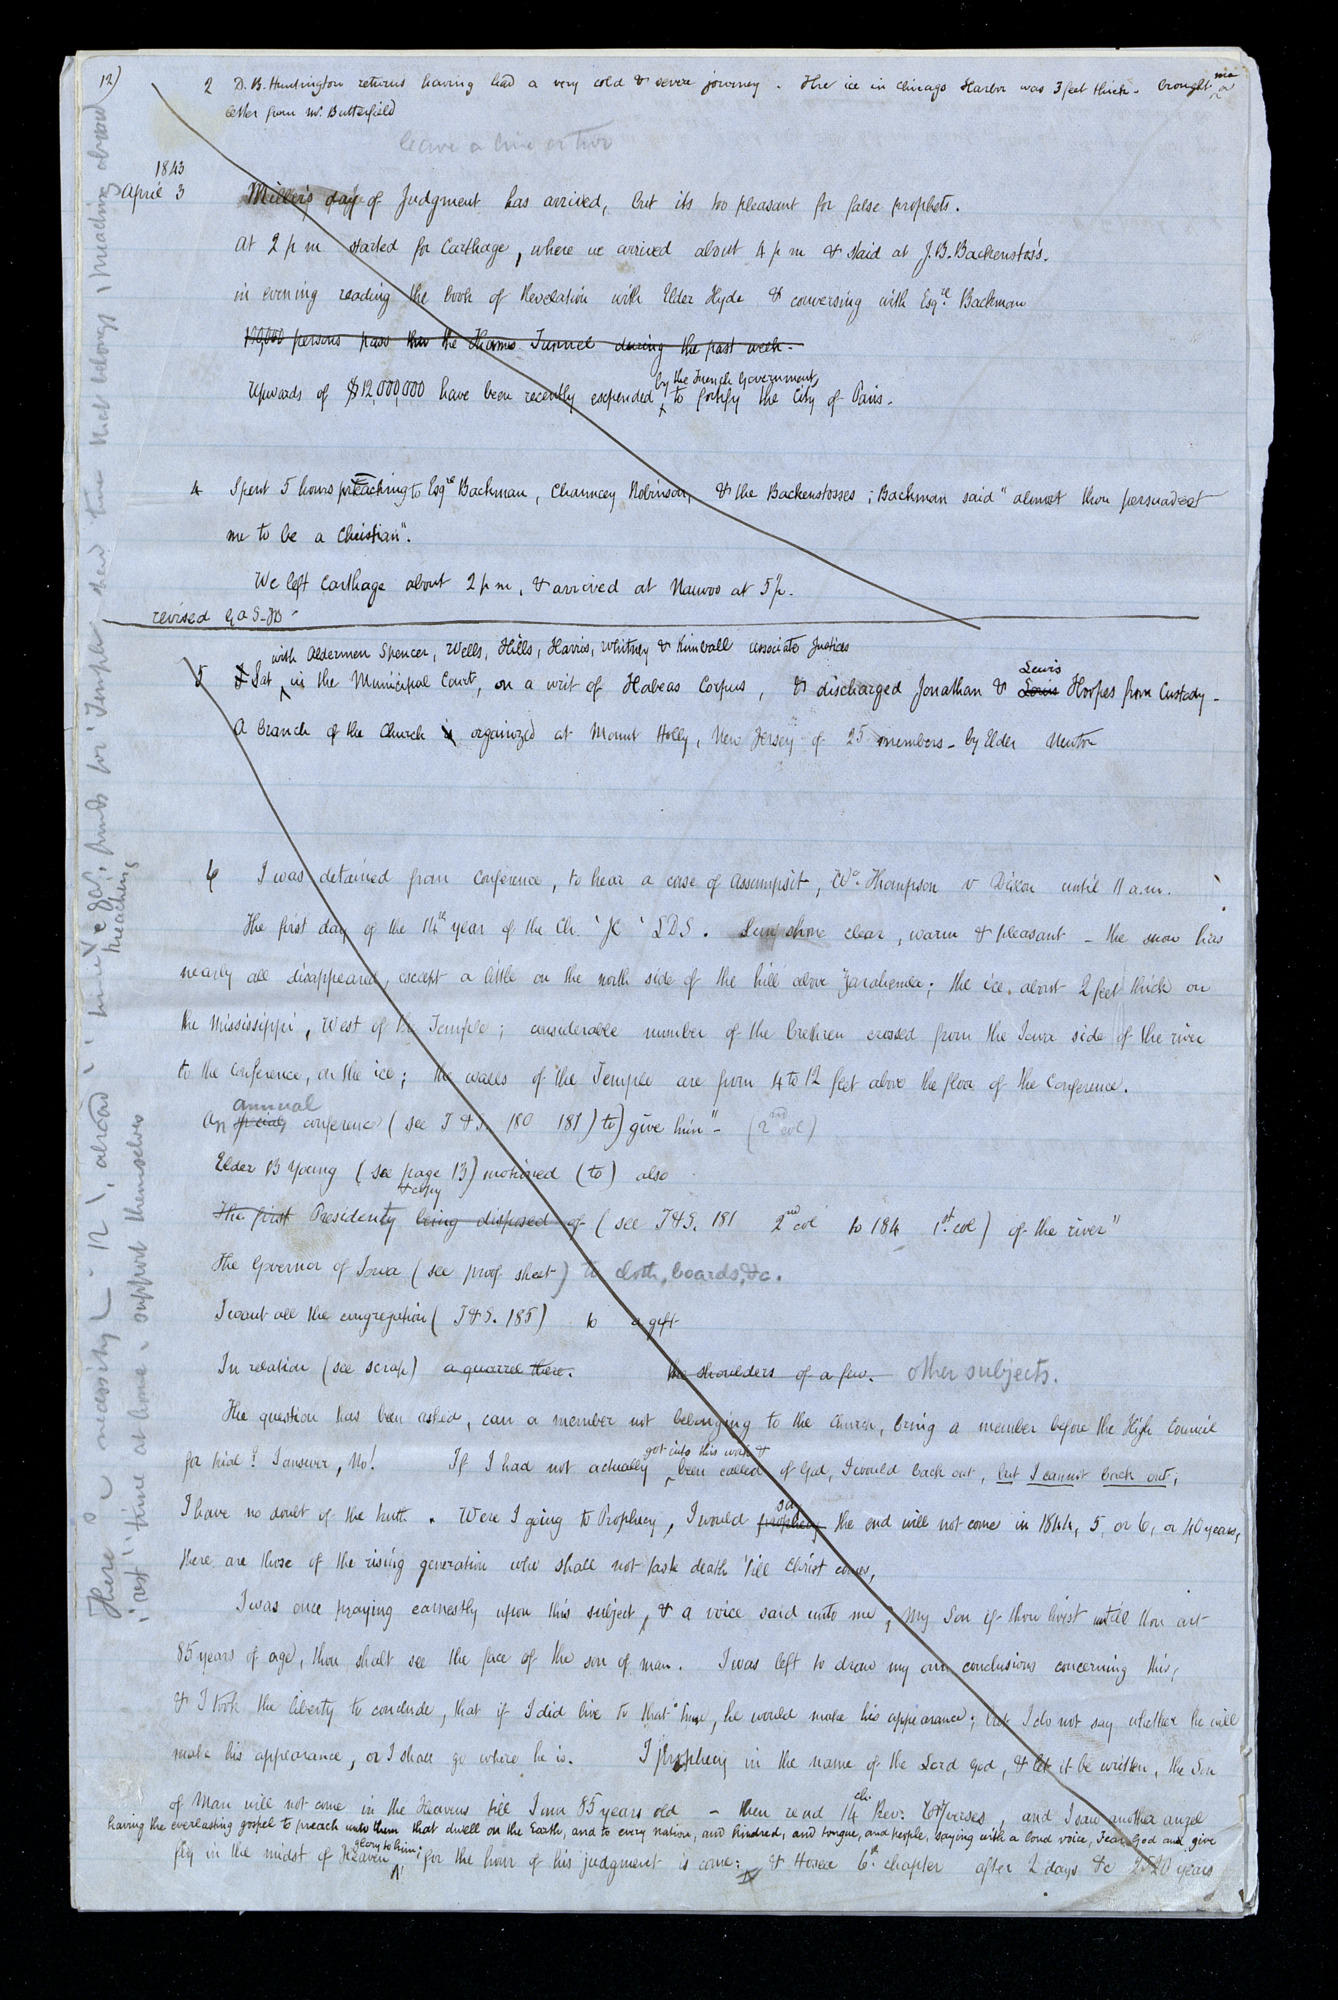 12)
2 D. B. Huntington returns having had a very cold & severe journey. The ice in Chicago Harbor was 3 feet thick - brought me a
letter from Mr. Butterfield
leave a line or two
1843
April 3 Miller's day of Judgment has arrived, but its too pleasant for false prophets.
At 2 p m started for Carthage, where we arrived about 4 p m & staid at J. B. Backenstos's.
in evening reading the book of Revelation with Elder Hyde & conversing with Esqre. Backman
persons pass thro the Thames Tunnel during the past week.
by the French Government,
Upwards of $12,000,000 have been recently expended to fortify the City of Paris.
4 Spent 5 hours preaching to Esqre Backman, Chauncey Robinson, & the Backenstosses; Backman said "almost thou persuadest
me to be a Christian".
We left Carthage about 2 p m, & arrived at Nauvoo at 5 p.
revised G A S -
with Aldermen Spencer, Wells, Hills, Harris, Whitney & Kimball associate Justices
5 Sat in the Municipal Court, on a writ of Habeas Corpus, & discharged Jonathan & Lewis Hoopes from Custody -
A branch of the Church organized at Mount Holly, New Jersey of 25 members - by Elder Newton
6 I was detained from conference, to hear a case of Assumpsit, Wm. Thompson v Dixon until 11 a.m.
The first day of the 14th year of the Ch. JC LDS. Sun shone clear, warm & pleasant - the snow has
nearly all disappeared, except a little on the north side of the hill above Zarahemla; the ice about 2 feet thick on
the Mississippi, West of the Temple; considerable number of the brethren crossed from the Iowa side of the river
to the conference, on the ice; the walls of the Temple are from 4 to 12 feet above the floor of the Conference.
annual
An special conference (see T & S. 180 181) to) give him" - (2nd col)
Elder B Young (see page 13) motioned (to) also
& copy
The first Presidenty being disposed of (see T & S. 181 2nd col to 184 1st. col) of the river"
The Governor of Iowa (see proof sheet) to cloth, boards, &c.
I want all the congregation (T & S. 185) to a gift
In relation (see scrap) a quarrel there. the shoulders of a few. other subjects.
The question has been asked, can a member not belonging to the Church, bring a member before the High Council
got into this work &
for trial? I answer, No! If I had not actually been called of God, I would back out, but I cannot back out;
say
I have no doubt of the truth. Were I going to Prophecy, I would prophecy the end will not come in 1844, 5, or 6, or 40 years,
there are those of the rising generation who shall not taste death 'till Christ comes,
I was once praying earnestly upon this subject, & a voice said unto me, My Son if thou livest untill thou art
85 years of age, thou shalt see the face of the son of man. I was left to draw my own conclusions concerning this,
& I took the liberty to conclude, that if I did live to that time, he would make his appearance; but I do not say whether he will
make his appearance, or I shall go where he is. I prophecy in the name of the Lord God, & let it be written, the Son
of Man will not come in the Heavens till I am 85 years old - then read 14 ch. Rev: verses, and I saw another angel
having the everlasting gospel to preach unto them that dwell on the Earth, and to every nation, and kindred, and tongue, and people, saying with a loud voice, Fear God and give
glory to him;
fly in the midst of Heaven for the hour of his judgment is come: & Hosea 6th. chapter after 2 days &c 2520 years
support themselves